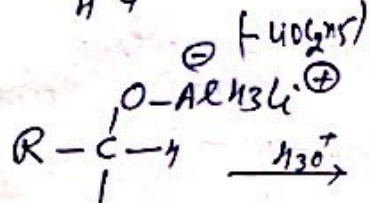 H
(-LiOC2H5)
⊖
O-AlH3Li ⊕
R-C-H H3O+